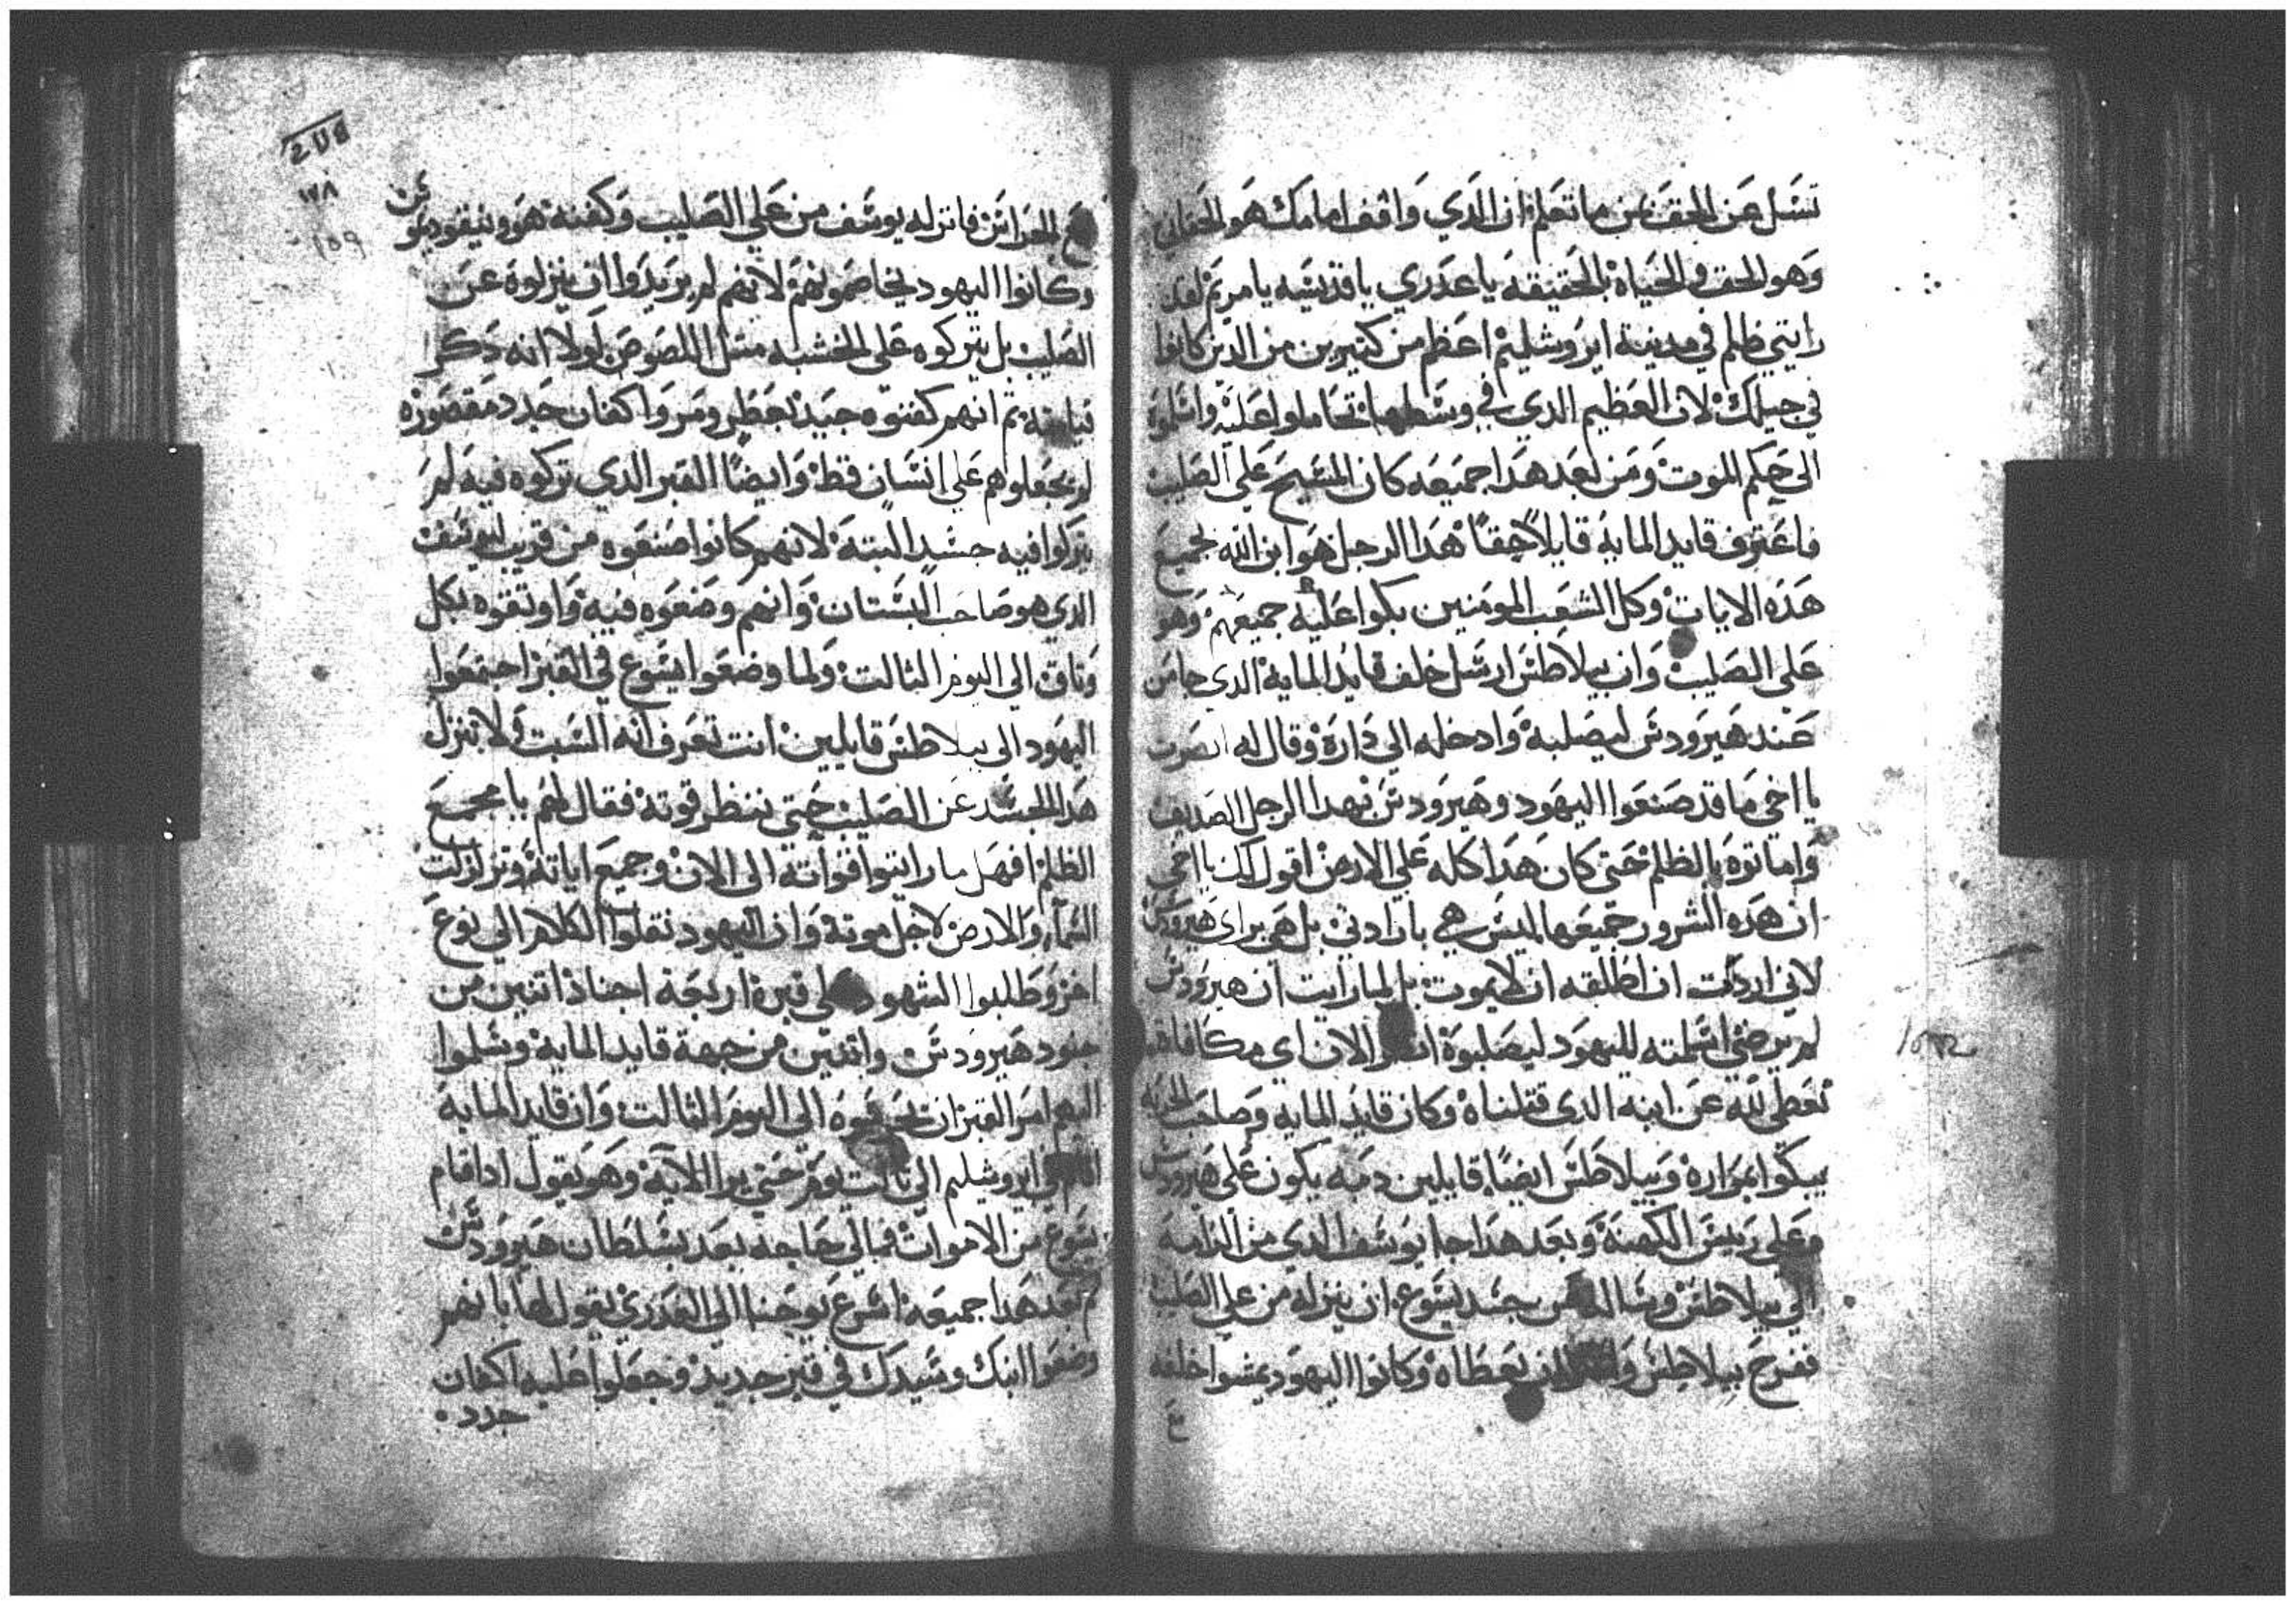 تسل عن الحق من ما تعلم ان الدي واقف امامك هو الحقاني
وهو الحق والحياة بالحقيقه يا عدري يا قديسه يا مريم لقد
رايتي ظلم في مدينة ايروشليم اعظم من كتيرين من الدين كانوا
في جيلك لان العظيم الدي في وسطها تحاملوا عليه واسلموه
الى حكم الموت ومن بعد هدا جميعه كان المسيح على الصليب
فاعترف قايد الماية قايلاً حقاً هدا الرجل هو ابن الله لجميع
هده الايات وكل الشعب المومنين بكوا عليه جميعهم وهو
على الصليب وان بيلاطس ارسل خلف قايد الماية الدي جا من
عند هيرودس ليصلبه وادخله الي داره وقال له ابصرت
يا اخي ما قد صنعوا اليهود وهيرودس بهدا الرجل الصديق
واماتوه بالظلم حتى كان هدا كله على الارض اقول لك يا اخي
ان هده الشرور جميعها ليس هي بارادتي بل هي براى هيرودس
لاني اردت ان اطلقه ان لا يموت بل لما رايت ان هيرودس
لم يرضى اسلمته لليهود ليصلبوه الان اى مكافاه
تعطى لله عن ابنه الدى قتلناه وكان قايد الماية وصاحب الحربه
يبكوا بمراره وبيلاطس ايضاً قايلين دمه يكون على هيرودس
وعلى ريس الكهنة وبعد هدا جا يوسف الدي من الرامه
الي بيلاطس وسال جسد يسوع ان ينزله من على الصليب
ففرح بيلاطس وامر ان يعطاه وكانوا اليهود يمشوا خلفه
مع
١٧٨
159
مع الحراس فانزله يوسف من على الصليب وكفنه هو ونيقوديموس
وكانوا اليهود يخاصمونهم لانهم لم يريدوا ان ينزلوه عن
الصليب بل يتركوه على الخشبه متل اللصوص لولا انه دكر
نياحته تم انهم كفنوه جيد بعطر ومر واكفان جدد مقصوره
لم يجعلوهم على انسان قط وايضاً القبر الدي تركوه فيه لم
يتركوا فيه جسد البتة لانهم كانوا صنعوه من قريب ليوسف
الدي هو صاحب البستان وانهم وضعوه فيه واوتقوه بكل
وتاق الي اليوم التالت ولما وضعوا يسوع في القبر اجتمعوا
اليهود الى بيلاطس قايلين انت تعرف انه السبت ولا تنزل
هدا الجسد عن الصليب حتي ننتظر قوته فقال لهم يا مجمع
الظلم افهل ما رايتوا قواته الى الان وجميع اياته وتزلزلت
السمآء والارض لاجل موته وان اليهود نقلوا الكلام الي نوع
اخر وطلبوا الشهود على قبره اربعة اجناد اتنين من
جنود هيرودس واتنين من جهة قايد الماية وسلموا
اليهم امر القبر ان يحرسوه الى اليوم التالت وان قايد الماية
اقام في ايروشليم الي تالت يوم حتي يرا الآية وهو يقول ادا قام
يسوع من الاموات فما لي حاجه بعد بسلطان هيرودس
تم بعد هدا جميعه اسرع يوحنا الي العدرى يقول لها بانهم
وضعوا ابنك وسيدك في قبر جديد وجعلوا عليه اكفان
جدد